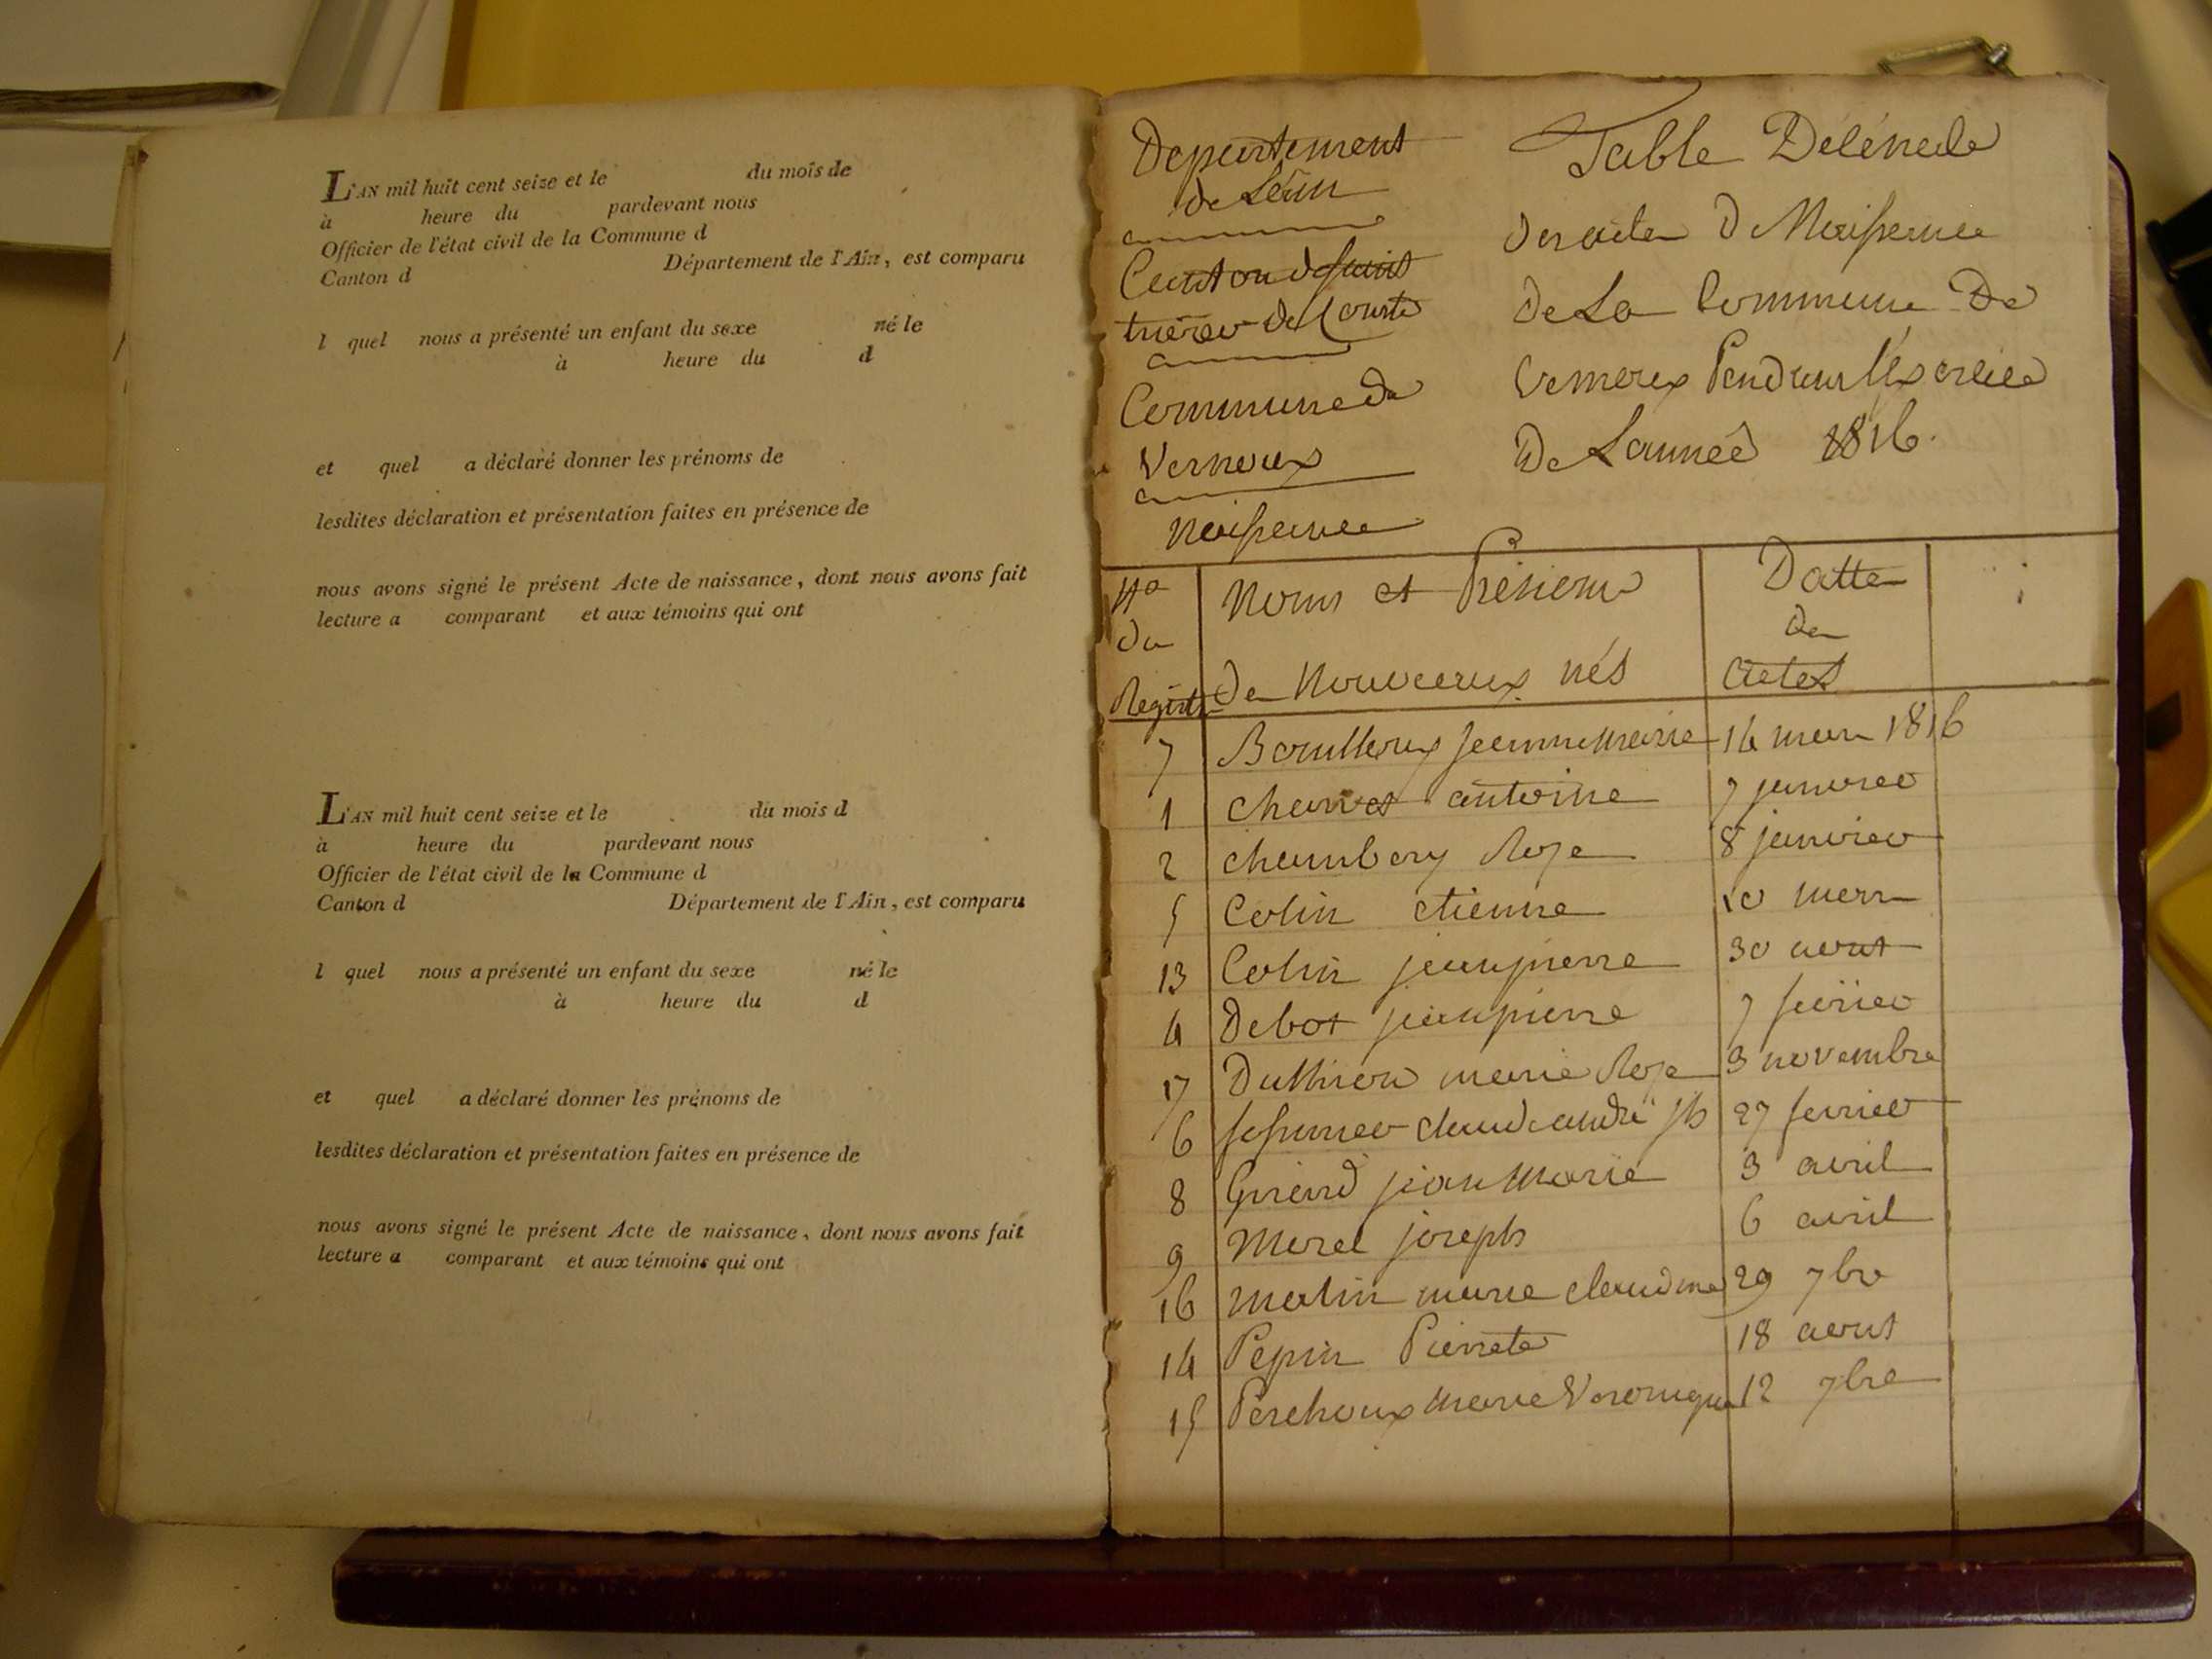 L'AN mil huit cent seize et le du mois de
à heure du pardevant nous
Officier de l'état civil de la Commune d
Canton d Département de l'Ain, est comparu
l quel nous a présenté un enfant du sexe né le
à heure du d
et quel a déclaré donner les prénoms de
lesdites déclaration et présentation faites en présence de
nous avons signé le présent Acte de naissance, dont nous avons fait
lecture a comparant et aux témoins qui ont
L'AN mil huit cent seize et le du mois d
à heure du pardevant nous
Officier de l'état civil de la Commune d
Canton d Département de l'Ain, est comparu
l quel nous a présenté un enfant du sexe né le
à heure du d
et quel a déclaré donner les prénoms de
lesdites déclaration et présentation faites en présence de
nous avons signé le présent Acte de naissance, dont nous avons fait
lecture a comparant et aux témoins qui ont
Departement
de Lain
Canton de saint
trivier de Courte
Commune de
Vernoux
Naissance
Table
des actes de Naissance
De La Commune De
Vernoux Pendant
De L'année 1816.
No
du
Registre
Noms et Prénoms
de Nouveaux nés
Datte
de
actes
7 Bouilloux jeanne marie 16 mars 1816
1 Charvet antoine 7 janvier
2 chambery Rose 8 janvier
5 Colin etienne 10 mars
13 Colin jean pierre 30 aout
4 Debot jean pierre 7 fevrier
17 Duthion marie Rose 3 novembre
6 claude andré jh 27 fevrier
8 jean Marie 3 avril
9 Morel joseph 6 avril
16 marie claudine 29 7bre
14 Pepin Pierrete 18 aout
15 Perchoux marie Veronique 12 7bre